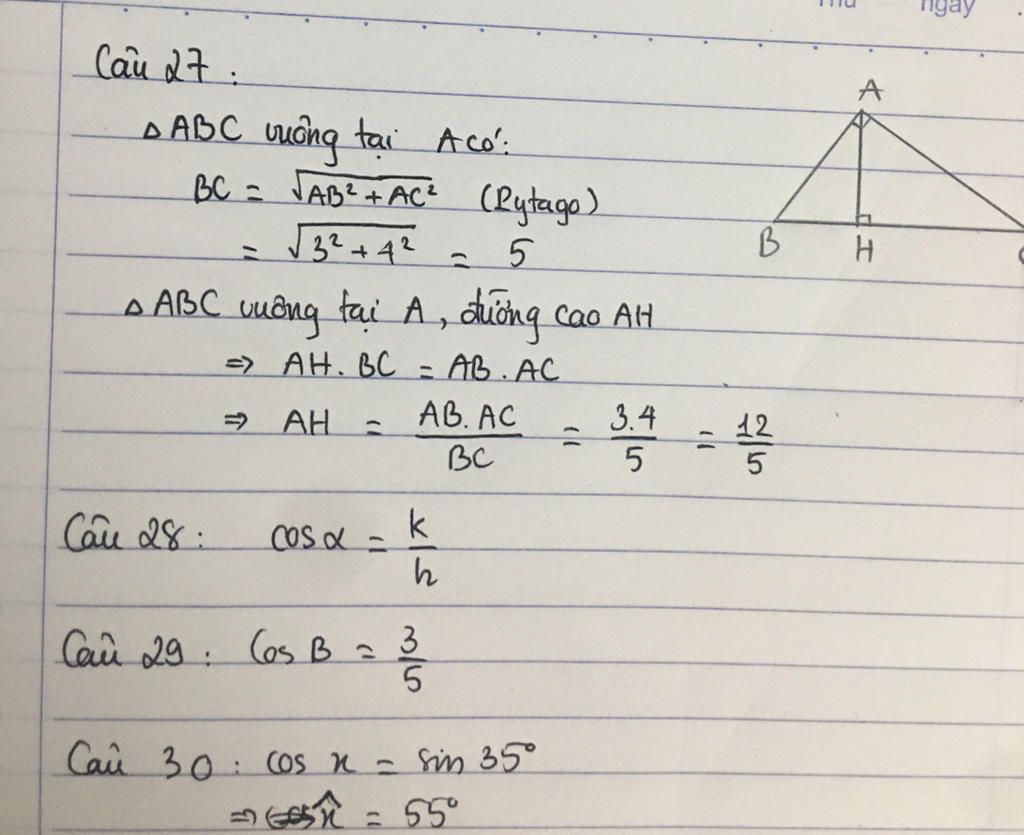 Thứ ngày
Câu 27 :
A
△ABC vuông tại A có:
BC = √AB² + AC² (Pytago)
= √3² + 4² = 5
B H
△ABC vuông tại A, đường cao AH
⇒ AH. BC = AB. AC
⇒ AH = AB. AC / BC = 3.4 / 5 = 12 / 5
Câu 28 : cosα = k / h
Câu 29 : Cos B = 3 / 5
Câu 30 : cos x = sin 35°
⇒ x̂ = 55°